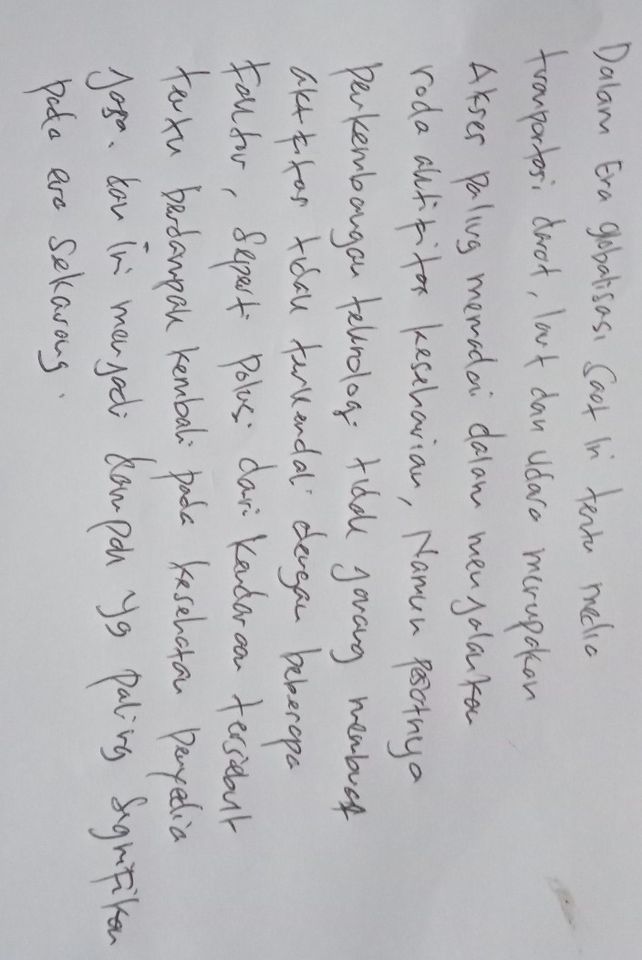 Dalam Era globalisasi Saat Ini tentu media
transportasi darat, laut dan udara merupakan
Akses paling memadai dalam menjalankan
roda aktifitas keseharian, Namun pesatnya
perkembangan teknologi tidak jarang membuat
aktifitas tidak terkendali dengan beberapa
faktor, Seperti polusi dari kendaraan tersebut
tentu berdampak kembali pada kesehatan penyedia
jasa. dan Ini menjadi dampak yg paling Signifikan
pada era Sekarang.